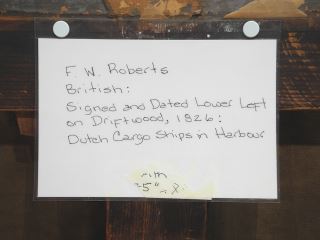 F. W. Roberts
British:
Signed and Dated Lower Left
on Driftwood, 1826:
Dutch Cargo Ships in Harbour